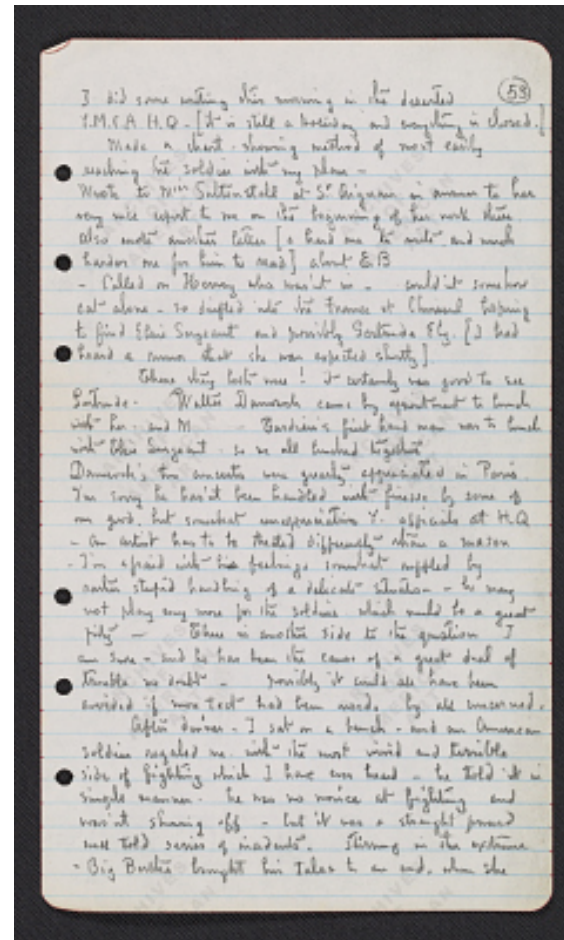 53
I did some writing this morning in the deserted
Y.M.C.A. H.Q. - [It is still a holiday and everything is closed.]
Made a chart showing method of most easily
reaching the soldier with my plans -
Wrote to Miss Saltonstall at St Aignan in answer to her
very nice report to me on the beginning of her work there.
Also wrote another letter [a hard one to write and much
harder one for him to read] about E B
- Called on Harvey who wasn't in - couldn't somehow
eat alone - so drifted into the France et Choiseul hoping
to find Elsie Sergeant and possibly Gertrude Ely. [I had
heard a rumor that she was expected shortly]
There they both were! it certainly was good to see
Gertrude - Walter Damrosch came by appointment to lunch
with her - and M. first hand man was to lunch
with Elsie Sergeant so we all lunched together
Damrosch's two concerts were greatly appreciated in Paris.
I'm sorry he hasn't been handled with finesse by some of
our good, but somewhat unappreciative Y. officials at H.Q
- an artist has to be treated differently than a mason
- I'm afraid with his feelings somewhat ruffled by
rather stupid handling of a delicate situation - he may
not play any more for the soldiers which would be a great
pity - There is another side to the question I
am sure - and he has been the cause of a great deal of
trouble no doubt - possibly it could all have been
avoided if more tact had been used, by all concerned.
After dinner - I sat on a bench - and an American
soldier regaled me with the most vivid and terrible
side of fighting which I have ever heard - he told it in
simple manner - he was no novice at fighting and
wasn't showing off - but it was a straight forward
well told series of incidents. Stirring in the extreme
- Big Bertha brought his tales to an end, when she